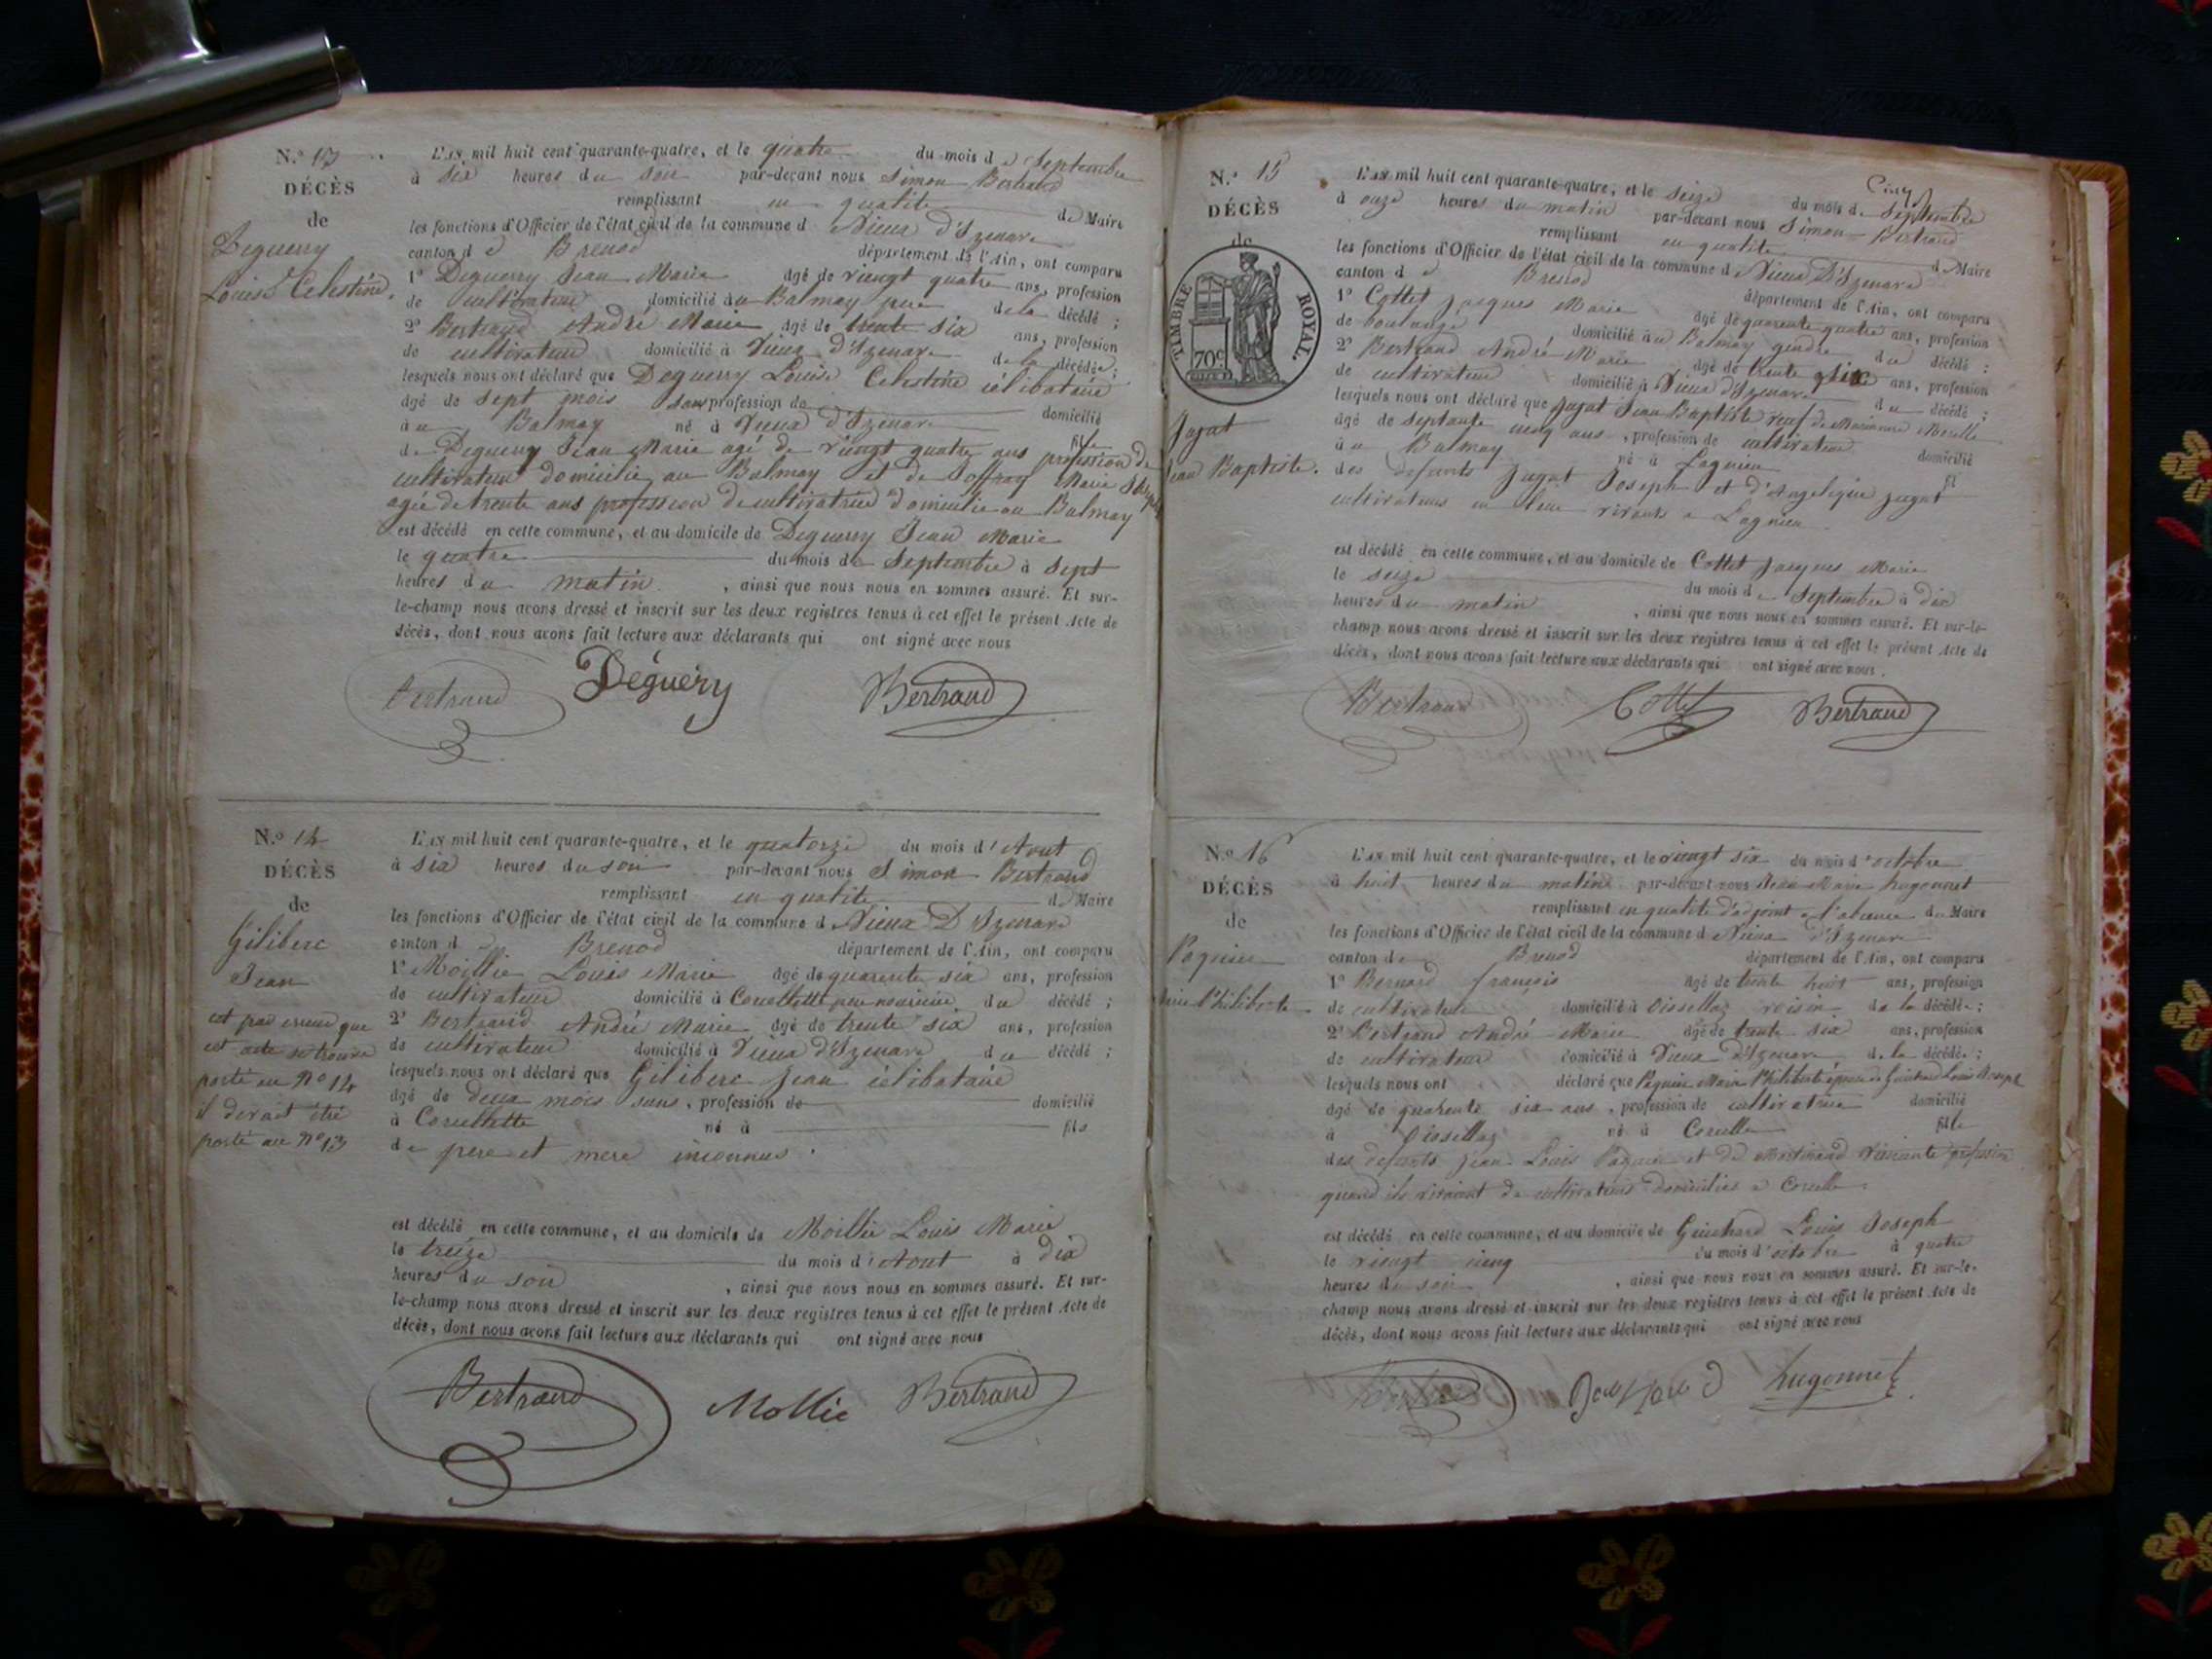 N.º 13
DÉCÈS
de
Deguerry
Louise Celestine.
L'AN mil huit cent quarante-quatre, et le quatre du mois de Septembre
à six heures du soir par-devant nous Simon Bertrand
remplissant en qualité de Maire
les fonctions d'Officier de l'état civil de la commune d Vieux d'Izenave
canton d e Brenod département de l'Ain, ont comparu
1º Deguerry Jean Marie âgé de vingt quatre ans, profession
de cultivateur domicilié au Balmay père de la décédé ;
2º Bertrand André Marie âgé de trente six ans, profession
de cultivateur domicilié à Vieux d'Izenave de la décédée ;
lesquels nous ont déclaré que Deguerry Louise Celestine célibataire
âgé de sept mois sans profession de domicilié
au Balmay né à Vieux d'Izenave fille
de Deguerry Jean Marie agé de vingt quatre ans profession de
cultivateur domicilié au Balmay et de Joffray Marie
agée de trente ans profession de cultivatrice domiciliée au Balmay
est décédé en cette commune, et au domicile de Deguerry Jean Marie
le quatre du mois de Septembre à sept
heures du matin, ainsi que nous nous en sommes assuré. Et sur-
le-champ nous avons dressé et inscrit sur les deux registres tenus à cet effet le présent Acte de
décès, dont nous avons fait lecture aux déclarants qui ont signé avec nous
Bertrand Déguery Bertrand
N.º 14
DÉCÈS
de
Giliberc
Jean
est par erreur que
cet acte se trouve
porté au Nº 14
il devrait être
porté au Nº 13
L'AN mil huit cent quarante-quatre, et le quatorze du mois d'Aout
à six heures du soir par-devant nous Simon Bertrand
remplissant en qualité de Maire
les fonctions d'Officier de l'état civil de la commune d Vieux D'Izenave
canton d e Brenod département de l'Ain, ont comparu
1º Moillie Louis Marie âgé de quarente six ans, profession
de cultivateur domicilié à Corcellette père nouricier du décédé ;
2º Bertrand André Marie âgé de trente six ans, profession
de cultivateur domicilié à Vieux d'Izenave du décédé ;
lesquels nous ont déclaré que Giliberc Jean célibataire
âgé de deux mois sans, profession de domicilié
à Corcellette né à fils
de pere et mere inconnus.
est décédé en cette commune, et au domicile de Moillie Louis Marie
le treize du mois d'Aout à dix
heures du soir, ainsi que nous nous en sommes assuré. Et sur-
le-champ nous avons dressé et inscrit sur les deux registres tenus à cet effet le présent Acte de
décès, dont nous avons fait lecture aux déclarants qui ont signé avec nous
Bertrand Mollie Bertrand
Cinq
N.º 15
DÉCÈS
de
TIMBRE ROYAL.
70c
Jugat
Jean Baptiste.
L'AN mil huit cent quarante-quatre, et le seize du mois de Septembre
à onze heures du matin par-devant nous Simon Bertrand
remplissant en qualité de Maire
les fonctions d'Officier de l'état civil de la commune d Vieux D'Izenave
canton d e Brenod département de l'Ain, ont comparu
1º Cottet Jacques Marie âgé de quarente quatre ans, profession
de boulangé domicilié au Balmay gendre du décédé ;
2º Bertrand André Marie âgé de trente six ans, profession
de cultivateur domicilié à Vieux d'Izenave du décédé ;
lesquels nous ont déclaré que Jugat Jean Baptiste veuf de Marianne
âgé de septante cinq ans, profession de cultivateur domicilié
au Balmay né à Lagnieu fil
des defunts Jugat Joseph et d'Angelique Jugat
cultivateurs en leur vivants a Lagnieu
est décédé en cette commune, et au domicile de Cottet Jacques Marie
le seize du mois de Septembre à dix
heures du matin, ainsi que nous nous en sommes assuré. Et sur-le-
champ nous avons dressé et inscrit sur les deux registres tenus à cet effet le présent Acte de
décès, dont nous avons fait lecture aux déclarants qui ont signé avec nous.
Bertrand Cottet Bertrand
N.º 16
DÉCÈS
de
Paquien
Philiberte
L'AN mil huit cent quarante-quatre, et le vingt six du mois d'octobre
à huit heures du matin par-devant nous Jean Marie hugonnet
remplissant en qualité d'adjoint a l'absence du Maire
les fonctions d'Officier de l'état civil de la commune d Vieux d'Izenave
canton de Brenod département de l'Ain, ont comparu
1º Bernard françois âgé de trente huit ans, profession
de cultivateur domicilié à Oissellaz voisin de la décédée ;
2º Bertrand André Marie âgé de trente six ans, profession
de cultivateur domicilié à Vieux d'Izenave de la décédée ;
lesquels nous ont déclaré que Paquien Marie Philiberte épouse de Guichard Louis Joseph
âgé de quarente six ans, profession de cultivatrice domicilié
à Oissellaz né à Corcelle fille
des defunts Jean Louis Paquien et de profession
quand ils vivaient de cultivateurs domiciliés a Corcelle
est décédé en cette commune, et au domicile de Guichard Louis Joseph
le vingt cinq du mois d'octobre à quatre
heures du soir, ainsi que nous nous en sommes assuré. Et sur-le-
champ nous avons dressé et inscrit sur les deux registres tenus à cet effet le présent Acte de
décès, dont nous avons fait lecture aux déclarants qui ont signé avec nous
Bertrand hugonnet